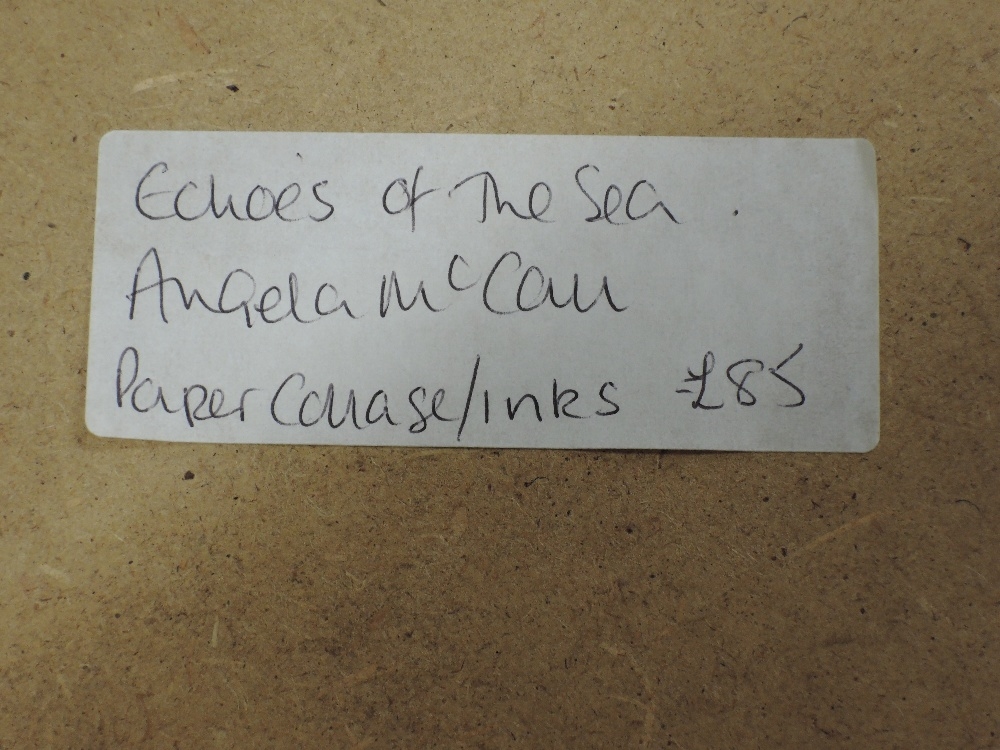 Echoes of The Sea .
Angela McCall
Paper Collage/inks £85